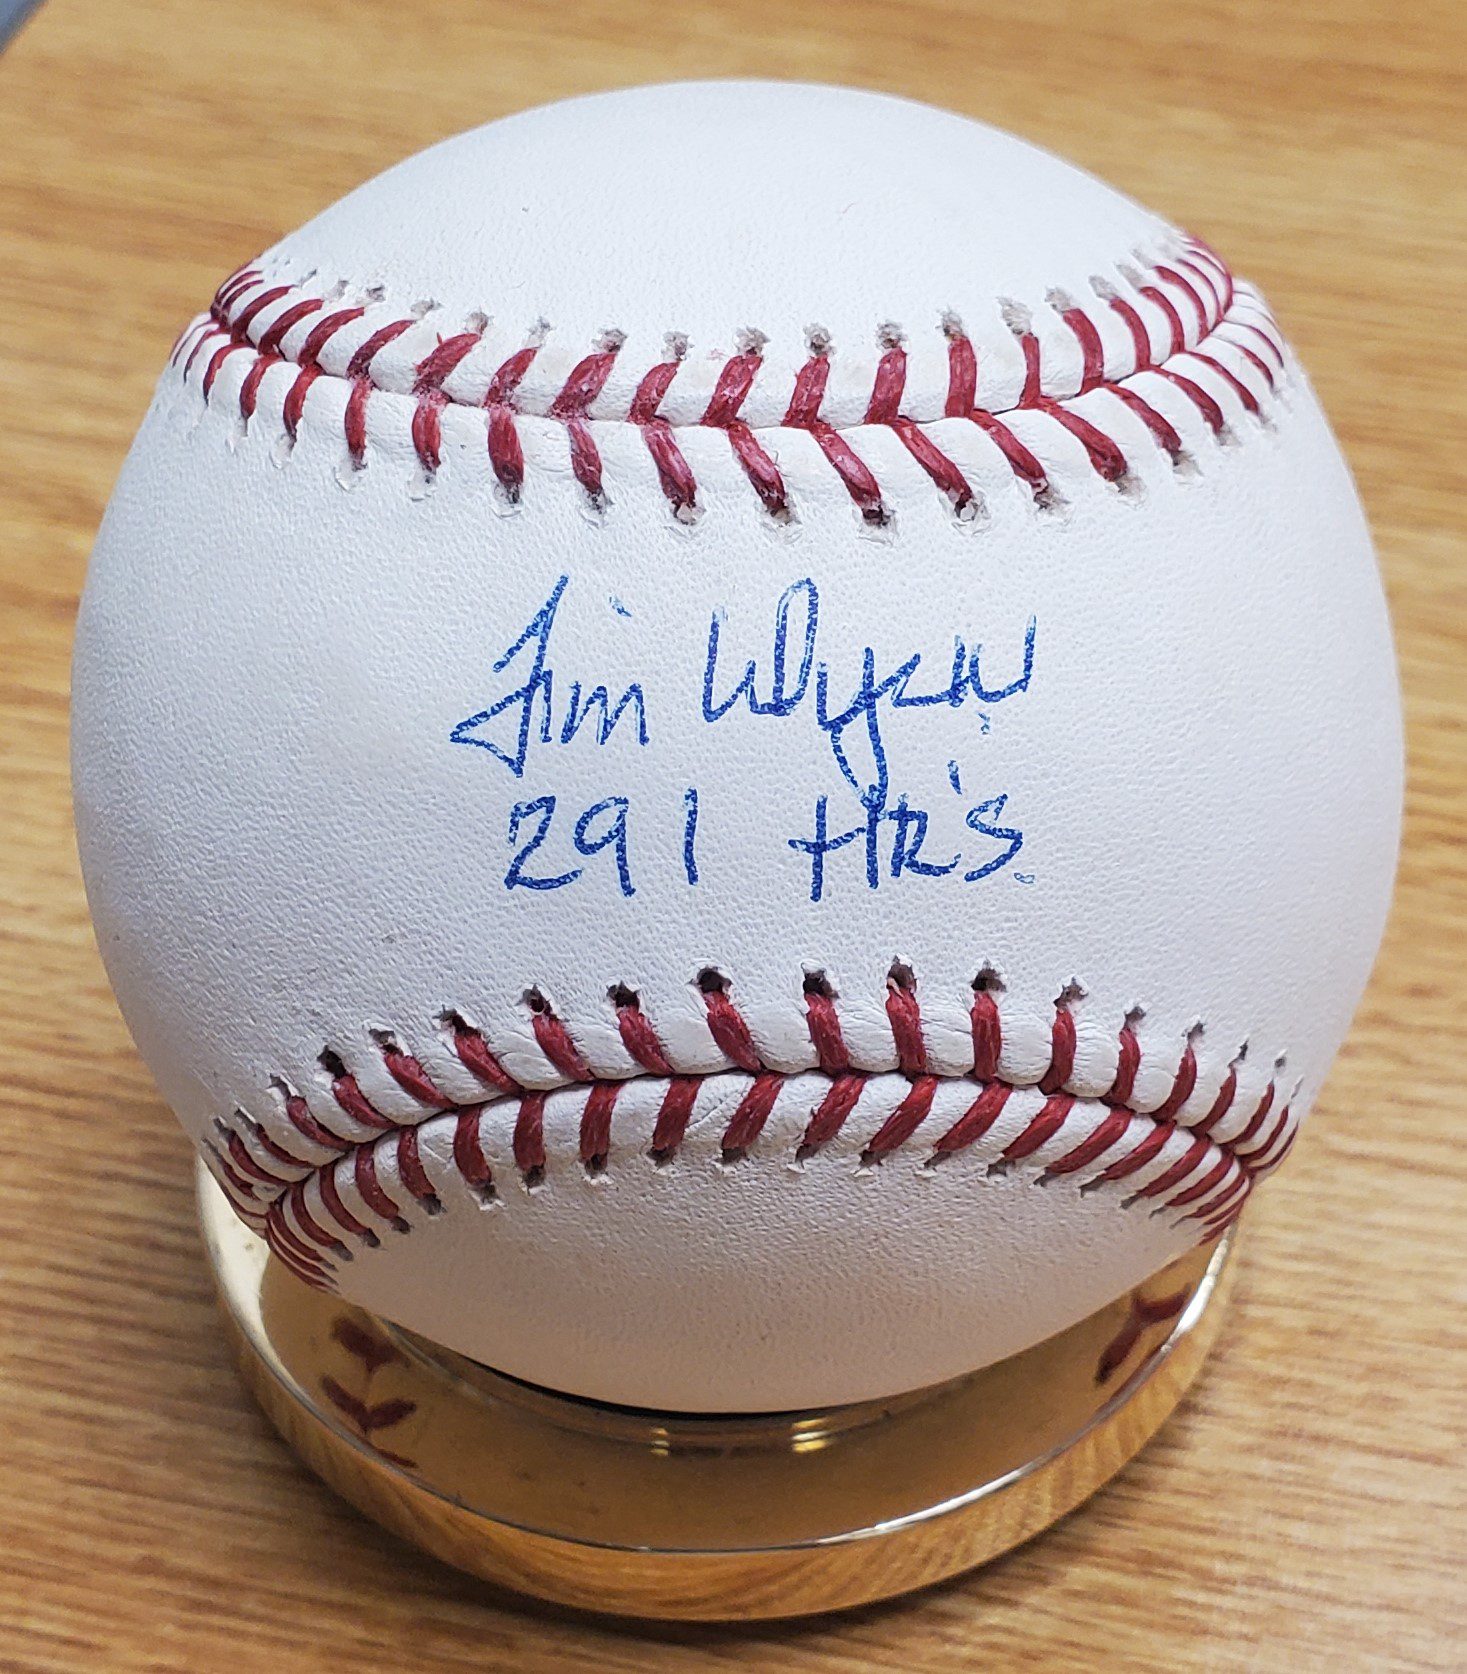 Jim Wynn
291 HR's